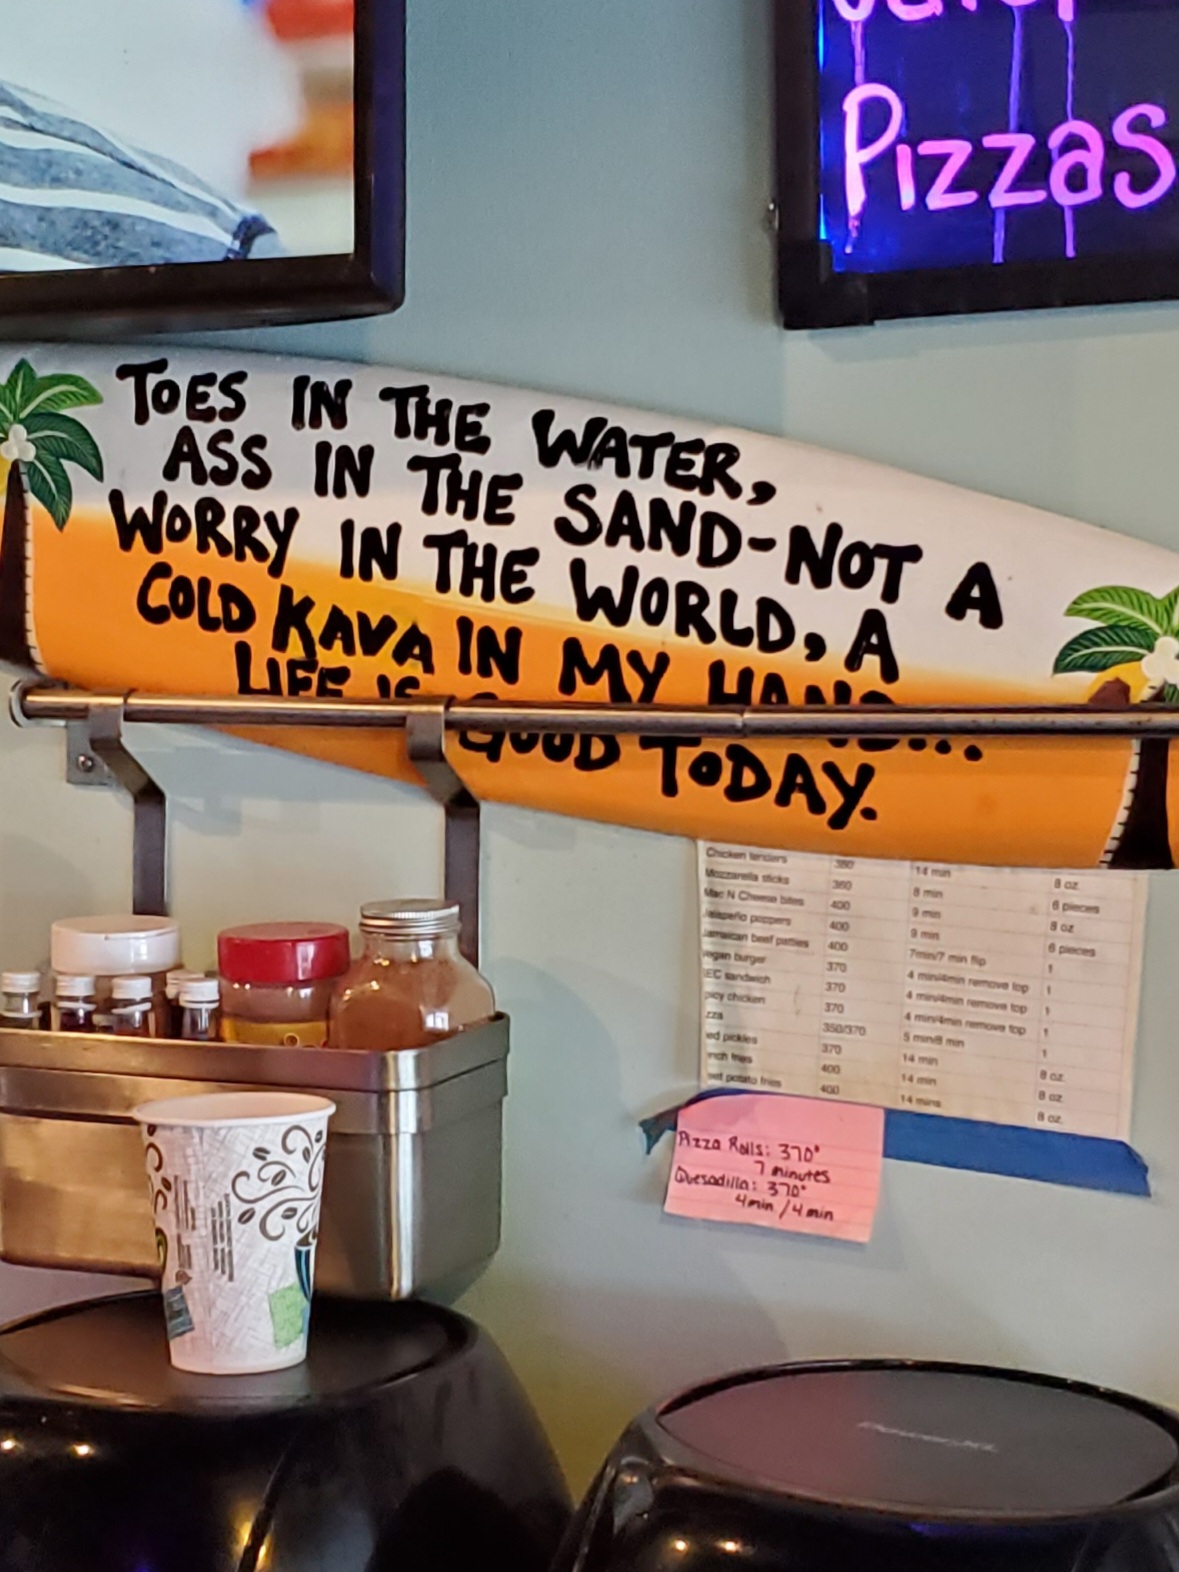 Pizzas
TOES IN THE WATER,
ASS IN THE SAND-NOT A
WORRY IN THE WORLD, A
COLD KAVA IN MY HAND...
LIFE IS GOOD TODAY.
Chicken tenders 380 14 min 8 oz
Mozzarella sticks 360 8 min 6 pieces
Mac N Cheese bites 400 9 min 8 oz
Jalapeño poppers 400 9 min 6 pieces
Jamaican beef patties 400 7min/7 min flip 1
egan burger 370 4 min/4min remove top 1
EC sandwich 370 4 min/4min remove top 1
picy chicken 370 4 min/4min remove top 1
zza 350/370 5 min/8 min 1
ed pickles 370 14 min 8 oz
nch fries 400 14 min 8 oz
eet potato fries 400 14 mins 8 oz
Pizza Rolls: 370°
7 minutes
Quesadilla: 370°
4min / 4min
PowerXL